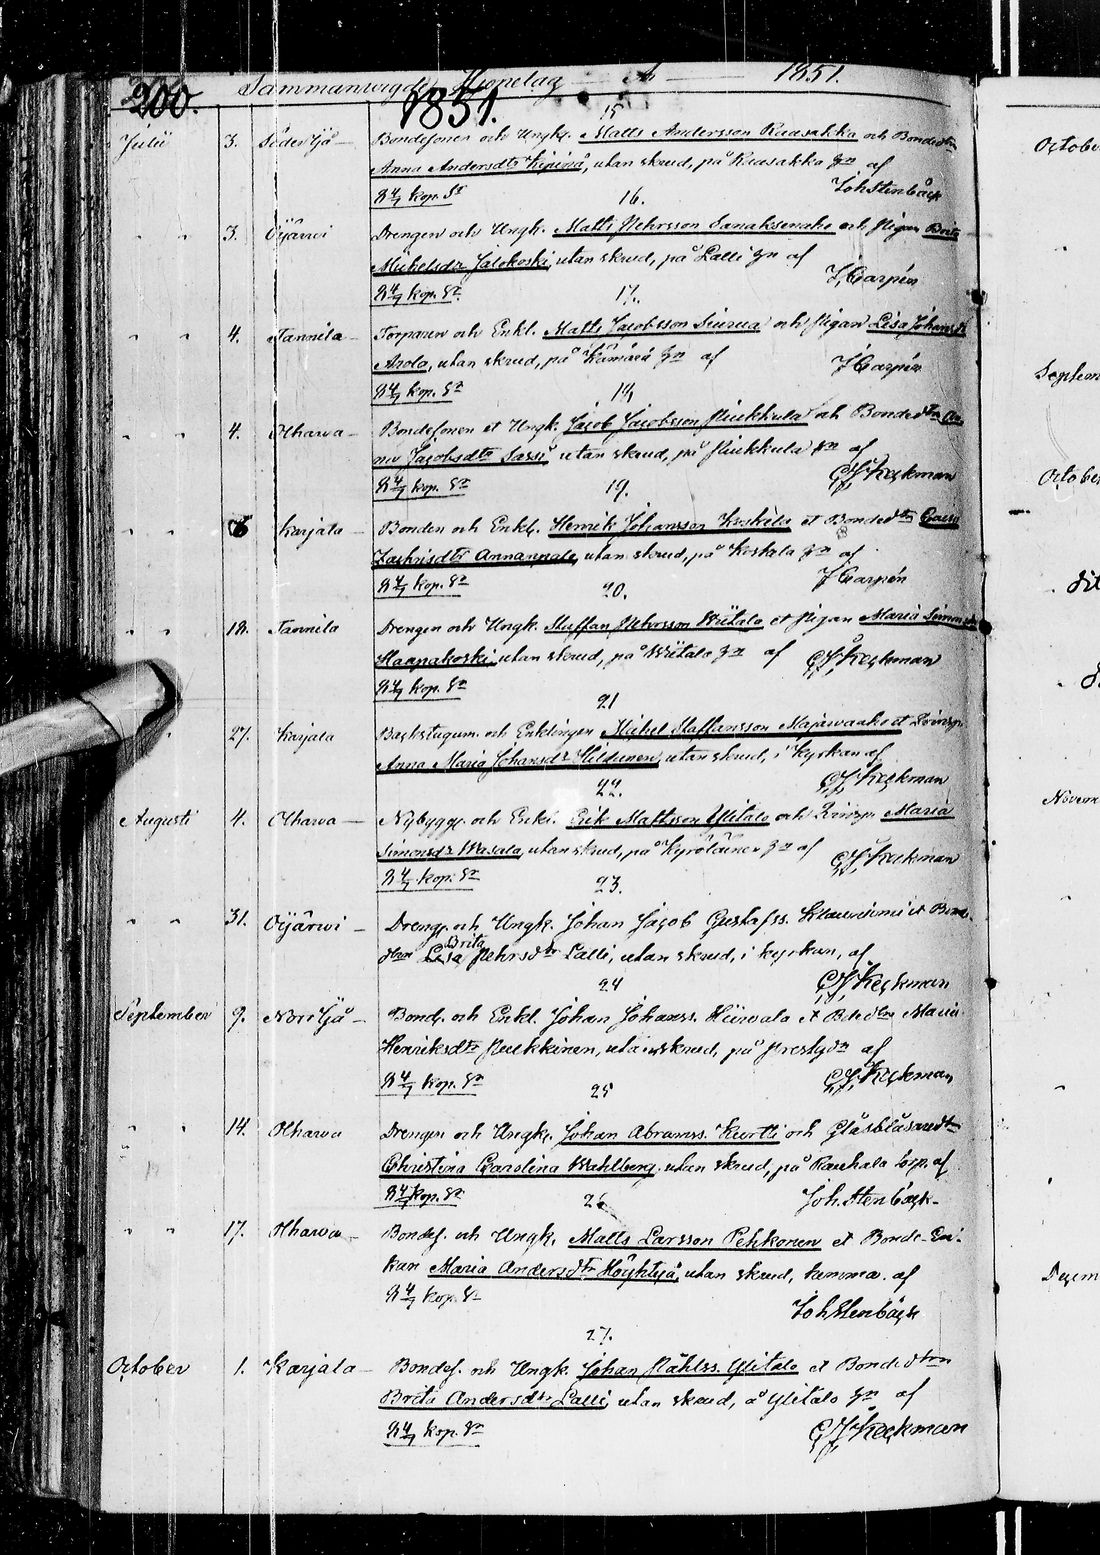 200. Sammanwigde Hionelag År 1851.
1851.
15
Julii 3. Söder Ijå Bondesonen och Ungk. Matts Andersson Ruasakka och Bondedtrn
Anna Andersdtr Kipinä, utan skrud, på Ruasakka gn af
R 4/7 kop. Sr Joh Stenbäck
16.
" " 3. Oijärwi Drengen och Ungk. Matts Pehrsson Sanaksenaho och Pigan Brita
Michelsdr Jalokoski, utan skrud, på Lalli gn af
R 4/7 kop. Sr J, Carpén
17.
" " 4. Tannila Torparen och Enkl. Matts Jacobsson Siurua och Pigan Lisa Johansdr
Arola, utan skrud, på Kämärä gn af J Carpén
R 4/7 kop. Sr
18
" " 4. Olhawa Bondesonen et Ungk. Jacob Jacobsson Piukkula och Bondedtrn An-
na Jacobsdtr Sassi utan skrud, på Piukkula gn af
R 4/7 kop. Sr CJ Keckman
19.
" " 6 Karjala Bonden och Enkl. Henrik Johansson Koskela et Bondedtrn Caisa
Zachrisdtr Annanpale, utan skrud, på Koskela gn af
R 4/7 kop. Sr J Carpén
20.
" " 18. Tannila Drengen och Ungk. Staffan Pehrsson Wiitala et Pigan Maria Simonsdr
Haapakoski, utan skrud, på Wiitala gn af CJ Keckman
R 4/7 kop. Sr
21
" 27. Karjala Backstugum. och Enklingen Michel Staffansson Majawaaho et Qwinsp.
Anna Maria Johansdr Hildunen, utan skrud, i kyrkan af
CJ Keckman
22.
Augusti 4. Olhawa Nybygg. och Enkl. Erik Mattsson Ylitalo och Qwinsp. Maria
Simonsdr Wasala, utan skrud, på Kyröläinen gn af
R 4/7 kop. Sr CJ Keckman
23.
" " 31. Oijärwi Dreng. och Ungk. Johan Jacob Gustafss. Klaurinimi et Bond-
dtrn Lisa Brita Pehrsdtr Lalli, utan skrud, i kyrkan, af
CJ Keckman
24
September 9. Norr Ijå Bond. och Enkl. Johan Johanss. Hiiwala et Bdedtrn Maria
Henriksdtr Pukkinen, utan skrud, på Prestgdn af
R 4/7 kop. Sr CJ Keckman
25
" " 14. Olhawa Drengen och Ungk. Johan Abramss. Kurtti och Glasblåsaredtrn
Christina Carolina Wahlberg, utan skrud, på Rauhala torp. af
R 4/7 kop. Sr Joh. Stenbäck
26
" " 17. Olhawa Bondes. och Ungk. Matts Larsson Pekkonen et Bonde-En-
kan Maria Andersdtr Höyhtyä, utan skrud, hemma. af
R 4/7 kop. Sr
Joh Stenbäck
27.
October 1. Karjala Bondes. och Ungk. Johan Påhlss. Ylitalo et Bondedtrn
Brita Andersdtr Lalli, utan skrud, å Ylitalo gn af
R 4/7 kop. Sr CJ Keckman
October
Septem
October
Novem
Decem